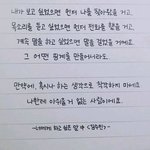 내가 보고 싶었으면 먼저 나를 찾아왔을 거고.
목소리를 듣고 싶었으면 먼저 전화를 했을 거고.
계속 말을 하고 싶었으면 말을 걸었을 거에요.
그 어떤 핑계를 만들어서라도.
만약에, 혹시나 하는 생각으로 착각하지 마세요
나한테 아쉬울 거 없는 사람이에요.
너에게 하고 싶은 말 中 <김수민>